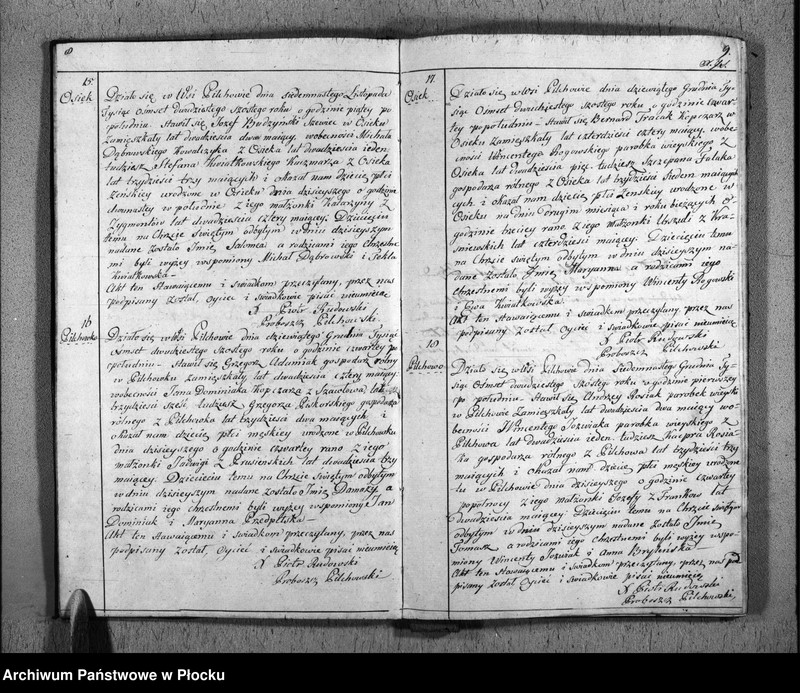 8
15
Osiek
Działo się w Wsi Pilchowie dnia siedemnastego Listopada
Tysiąc Osmset dwudziestego szostego roku o godzinie piątey po
południu. Stawił się Jozef Budzynski Szewc w Osieku
zamięszkały lat dwadzieścia dwa maiący, w obecności Michała
Dąbrowskiego Kowalczyka z Osieka lat dwadzieścia ieden
tudzież Stefana Kwiatkowskiego Kaczmarza z Osieka
lat trzydzieści trzy maiących i okazał nam dziecię płci
żenskiey urodzone w Osieku dnia dzisieyszego o godzinie
dwunastey w południe z iego małżonki Katarzyny z
Zygmuntów lat dwadzieścia cztery maiącey. Dziecięciu
temu na Chrzcie Swiętym odbytym w dniu dzisieyszym
nadane zostało Imię Salomea a rodzicami iego chrzestne
mi byli wyżey wspomniony Michał Dąbrowski i Tekla
Kwiatkowska —
Akt ten stawaiącemu i swiadkom przeczytany, przez nas
podpisany został, Oyciec i swiadkowie pisac nieumieią
X Piotr Rudowski
Proboszcz Pilchowski.
16
Pilchowo
Działo się w Wsi Pilchowie dnia dziewiątego Grudnia Tysiąc
Osmset dwudziestego szostego roku o godzinie czwartey po
południu — Stawił się Grzegorz Adamiak gospodarz rolny
w Pilchowku zamięszkały, lat dwadzieścia cztery maiący
w obecności Jana Dominiaka Kopczarza z lat
trzydzieści sześć tudzież Grzegorza Piskorskiego gospodarza
rolnego z Pilchowka lat trzydzieści dwa maiących i
okazał nam dziecię płci męskiey urodzone w Pilchowku
dnia dzisieyszego o godzinie czwartey rano z iego
małżonki Jadwigi z lat dwadzieścia trzy
maiącey. Dziecięciu temu na Chrzcie Swiętym odbytym
w dniu dzisieyszym nadane zostało Imię Damazy a
rodzicami iego chrzestnemi byli wyżey wspomniony Jan
Dominiak i Maryanna
Akt ten stawaiącemu i swiadkom przeczytany, przez nas
podpisany został, Oyciec i swiadkowie pisac nieumieią
X Piotr Rudowski
Proboszcz Pilchowski
9.
17
Osiek
Działo się w Wsi Pilchowie dnia dziewiątego Grudnia Ty-
siąc Osmset dwudziestego szostego roku o godzinie czwar-
tey po południu — Stawił się Bernard Traczak Kopczarz w
Osieku zamięszkały lat czterdzieści cztery maiący, w obe-
cności Wincentego Rogowskiego parobka wieyskiego z
Osieka lat dwadzieścia pięć tudzież Szczepana
gospodarza rolnego z Osieka lat trzydzieści siedem maiących
i okazał nam dziecię płci żenskiey urodzone w
Osieku na dniu drugim miesiąca i roku bieżących o
godzinie trzeciey rano z iego małżonki Urszuli z Kra-
śniewskich lat czterdzieści maiącey. Dziecięciu temu
na Chrzcie swiętym odbytym w dniu dzisieyszym na-
dane zostało Imię Maryanna a rodzicami iego
chrzestnemi byli wyżey wspomniony Wincenty Rogowski
i Ewa Kwiatkowska.
Akt ten stawaiącemu i swiadkom przeczytany, przez nas
podpisany został, Oyciec i swiadkowie pisac nieumieią
X Piotr Rudowski
Proboszcz Pilchowski
18
Pilchowo
Działo się w Wsi Pilchowie dnia siedemnastego Grudnia Ty-
siąc Osmset dwudziestego szostego roku o godzinie pierwszey
po południu — Stawił się Andrzey Rosiak parobek wieyski
w Pilchowie zamięszkały lat dwadzieścia dwa maiący w o-
becności Wincentego Jozwiaka parobka wieyskiego z
Pilchowa lat dwadzieścia ieden, tudzież Kacpra Rosia-
ka gospodarza rolnego z Pilchowa lat trzydzieści trzy
maiących i okazał nam dziecię płci męskiey urodzone
tu w Pilchowie dnia dzisieyszego o godzinie czwartey
po połnocy z iego małżonki Jozefy z lat
dwadzieścia maiącey. Dziecięciu temu na Chrzcie swiętym
odbytym w dniu dzisieyszym nadane zostało Imię
Tomasz a rodzicami iego chrzestnemi byli wyżey wspo-
mniony Wincenty Jozwiak i Anna
Akt ten stawaiącemu i swiadkom przeczytany, przez nas pod
pisany został Oyciec i swiadkowie pisac nieumieią
X Piotr Rudowski
Proboszcz Pilchowski.
Archiwum Państwowe w Płocku